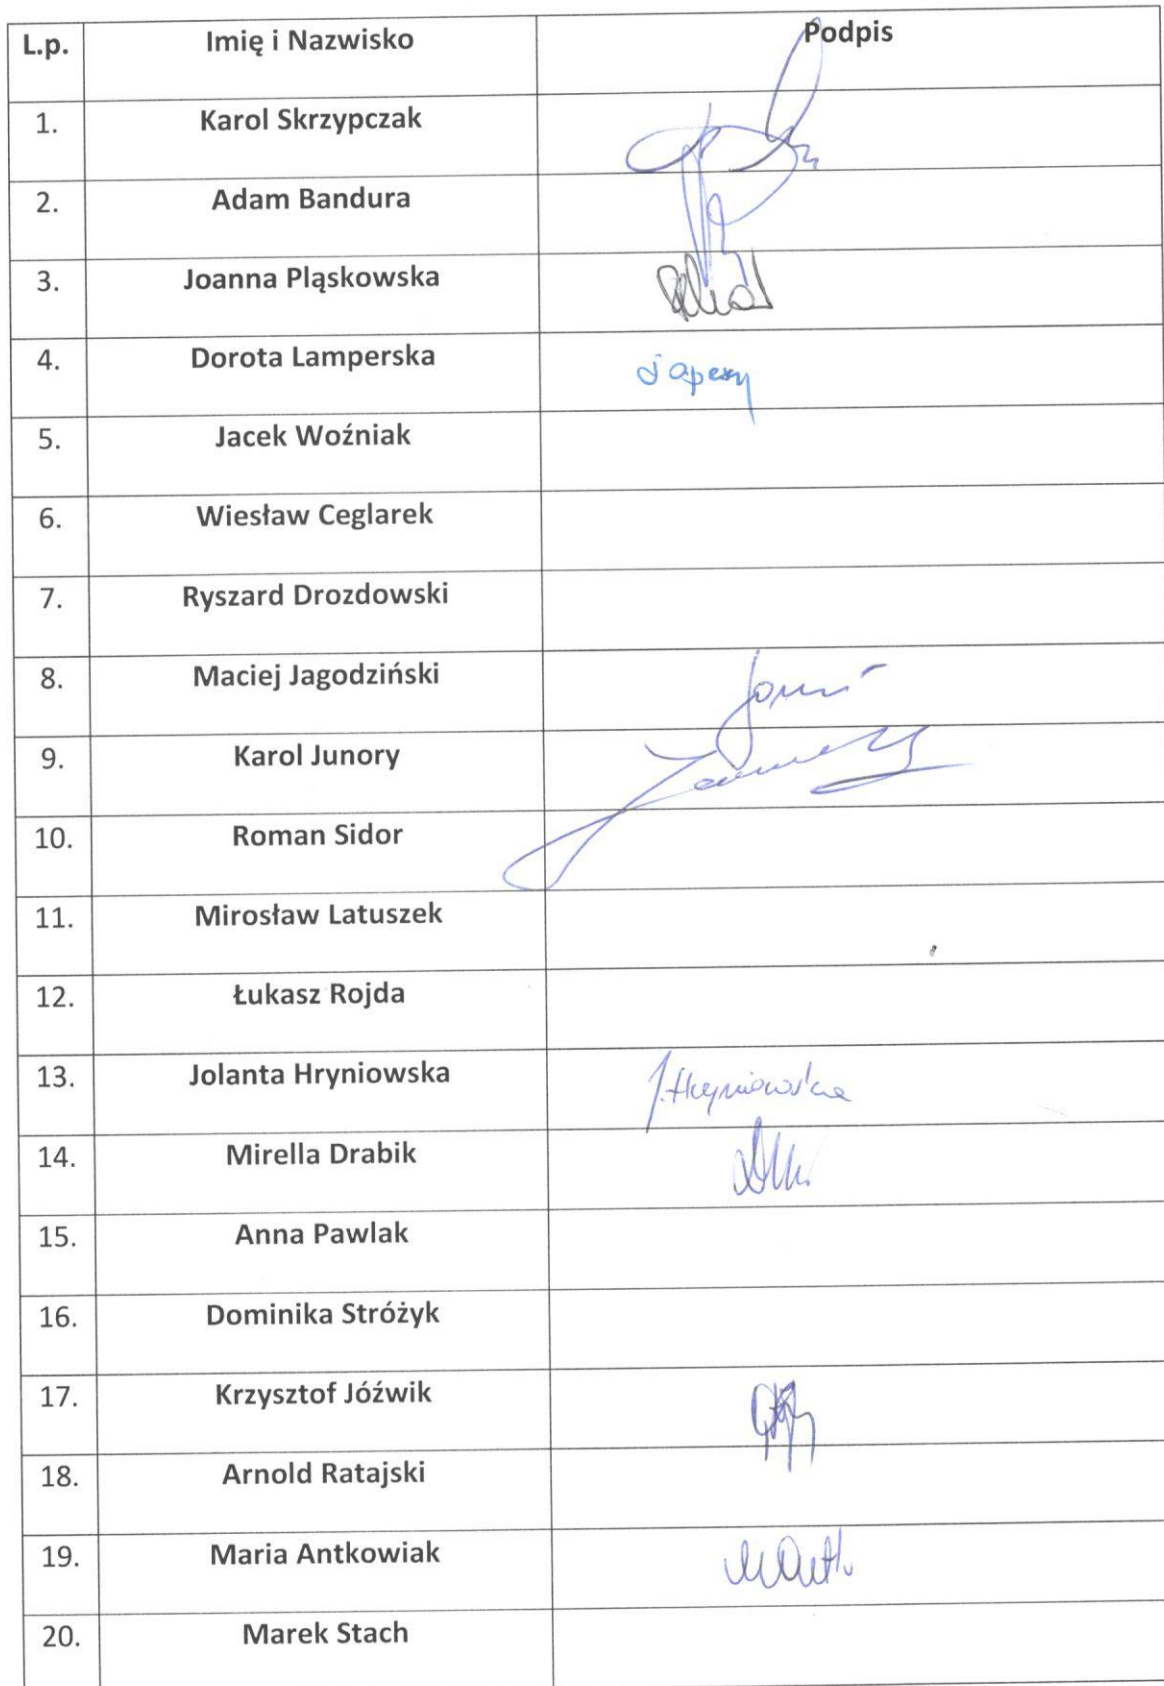 L.p. Imię i Nazwisko Podpis
1. Karol Skrzypczak
2. Adam Bandura
3. Joanna Pląskowska
4. Dorota Lamperska
5. Jacek Woźniak
6. Wiesław Ceglarek
7. Ryszard Drozdowski
8. Maciej Jagodziński
9. Karol Junory
10. Roman Sidor
11. Mirosław Latuszek
12. Łukasz Rojda
13. Jolanta Hryniowska J. Hryniowska
14. Mirella Drabik
15. Anna Pawlak
16. Dominika Stróżyk
17. Krzysztof Jóźwik
18. Arnold Ratajski
19. Maria Antkowiak
20. Marek Stach